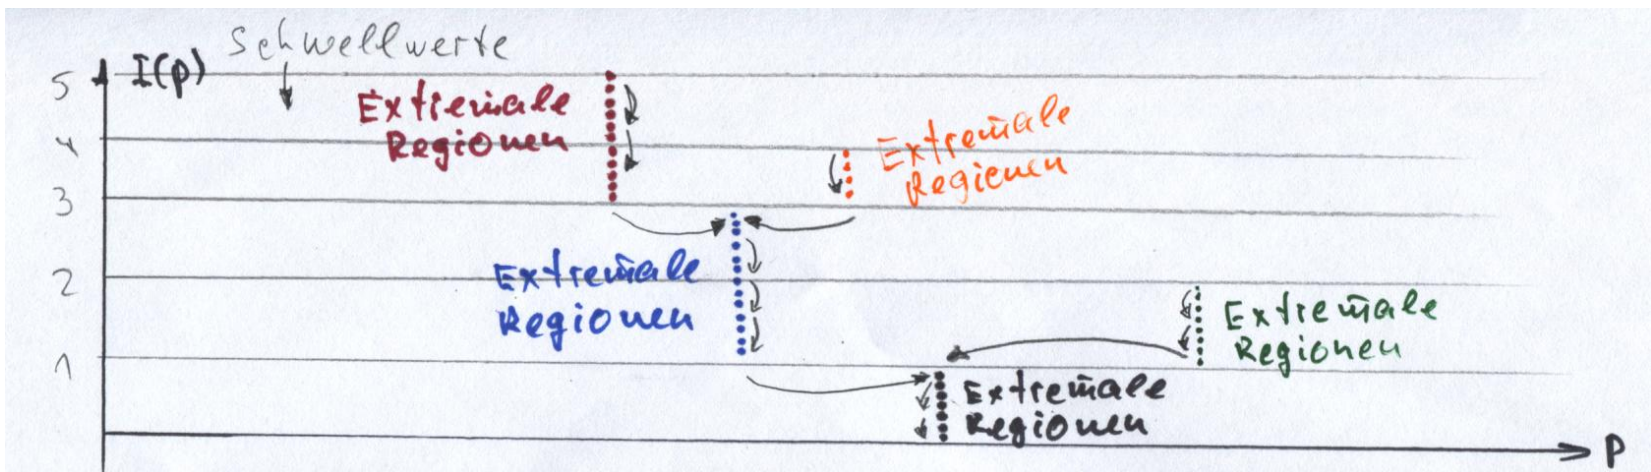 Schwellwerte
5 I(p)
Extremale
Regionen
4
Extremale
Regionen
3
Extremale
Regionen
2
Extremale
Regionen
1
Extremale
Regionen
P